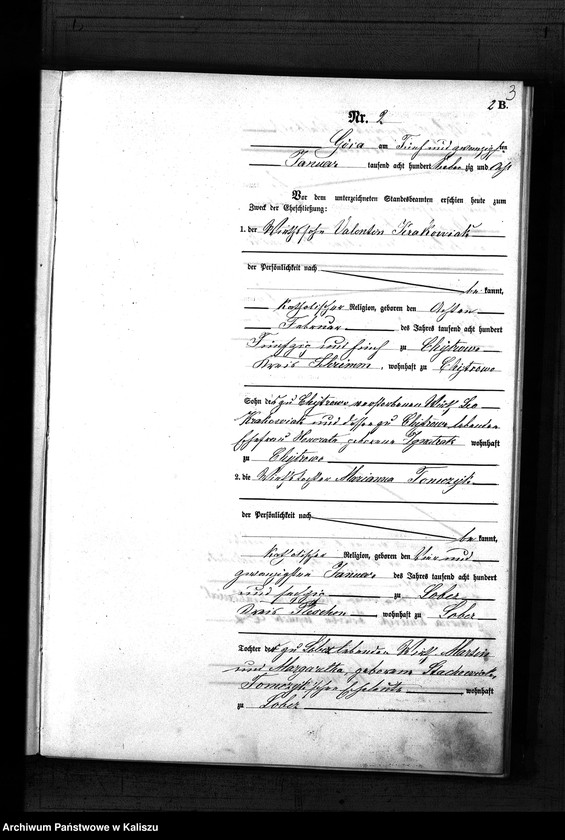 3
2 B.
Nr. 2
Góra am Fünf und zwanzig ten
Januar tausend acht hundert sieben zig und acht
Vor dem unterzeichneten Standesbeamten erschien heute zum
Zweck der Eheschließung:
1. der Wirthssohn Valentin Krakowiak
der Persönlichkeit nach
be kannt,
katholischer Religion, geboren den Achten
Februar des Jahres tausend acht hundert
Fünfzig und fünf zu Chytrowo
Kreis Schrimm, wohnhaft zu Chytrowo
Sohn des zu Chytrowo verstorbenen Wirth Leo
Krakowiak und dessen zu Chytrowo lebenden
Ehefrau geborene wohnhaft
zu Chytrowo
2. die Wirthstochter Marianna Tomczyk
der Persönlichkeit nach
be kannt,
katholischer Religion, geboren den Vier und
zwanzigsten Januar des Jahres tausend acht hundert
und sechzig zu Lober
Kreis Pleschen, wohnhaft zu Lober
Tochter der zu Lober lebenden Wirth Martin
und Margaretha geborene
Tomczyk'schen Eheleute wohnhaft
zu Lober
Archiwum Państwowe w Kaliszu